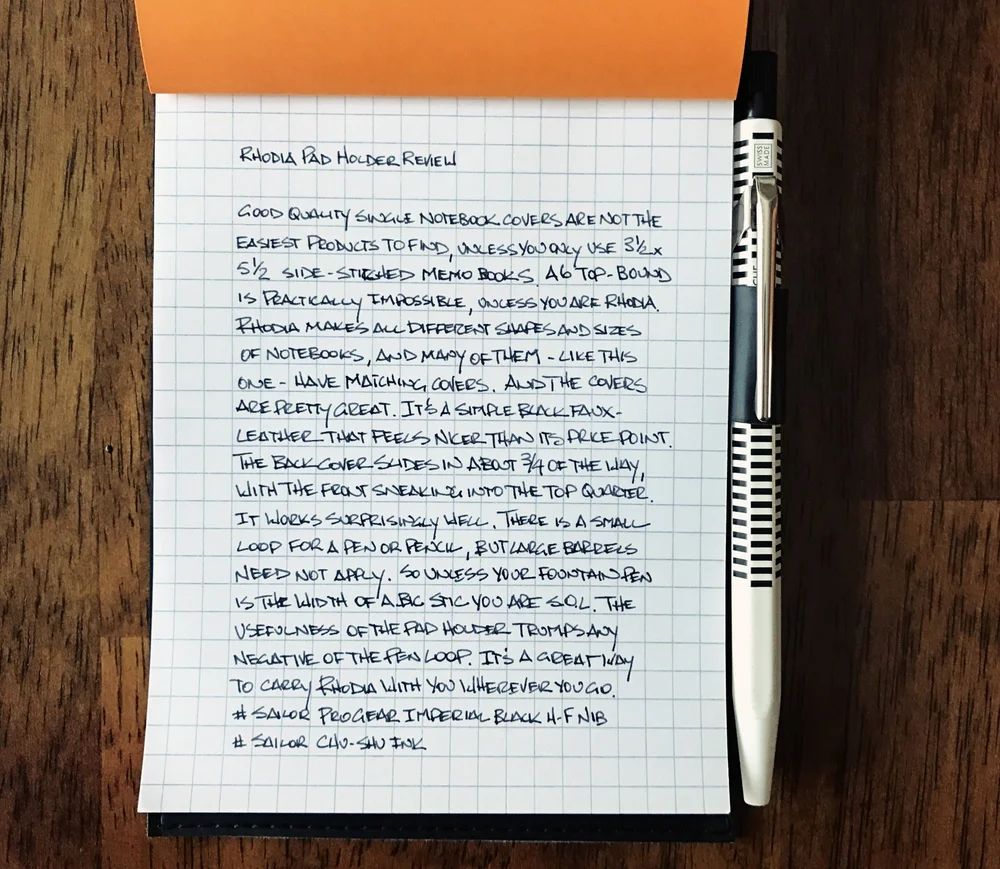 RHODIA PAD HOLDER REVIEW
GOOD QUALITY SINGLE NOTEBOOK COVERS ARE NOT THE
EASIEST PRODUCTS TO FIND, UNLESS YOU ONLY USE 3½ x
5½ SIDE-STITCHED MEMO BOOKS. A6 TOP-BOUND
IS PRACTICALLY IMPOSSIBLE, UNLESS YOU ARE RHODIA.
RHODIA MAKES ALL DIFFERENT SHAPES AND SIZES
OF NOTEBOOKS, AND MANY OF THEM - LIKE THIS
ONE - HAVE MATCHING COVERS. AND THE COVERS
ARE PRETTY GREAT. IT'S A SIMPLE BLACK FAUX-
LEATHER THAT FEELS NICER THAN ITS PRICE POINT.
THE BACK COVER SLIDES IN ABOUT 3/4 OF THE WAY,
WITH THE FRONT SNEAKING INTO THE TOP QUARTER.
IT WORKS SURPRISINGLY WELL. THERE IS A SMALL
LOOP FOR A PEN OR PENCIL, BUT LARGE BARRELS
NEED NOT APPLY. SO UNLESS YOUR FOUNTAIN PEN
IS THE WIDTH OF A BIC STIC YOU ARE S.O.L. THE
USEFULNESS OF THE PAD HOLDER TRUMPS ANY
NEGATIVE OF THE PEN LOOP. IT'S A GREAT WAY
TO CARRY RHODIA WITH YOU WHEREVER YOU GO.
# SAILOR PRO GEAR IMPERIAL BLACK H-F NIB
# SAILOR CHU-SHU INK
SWISS
MADE